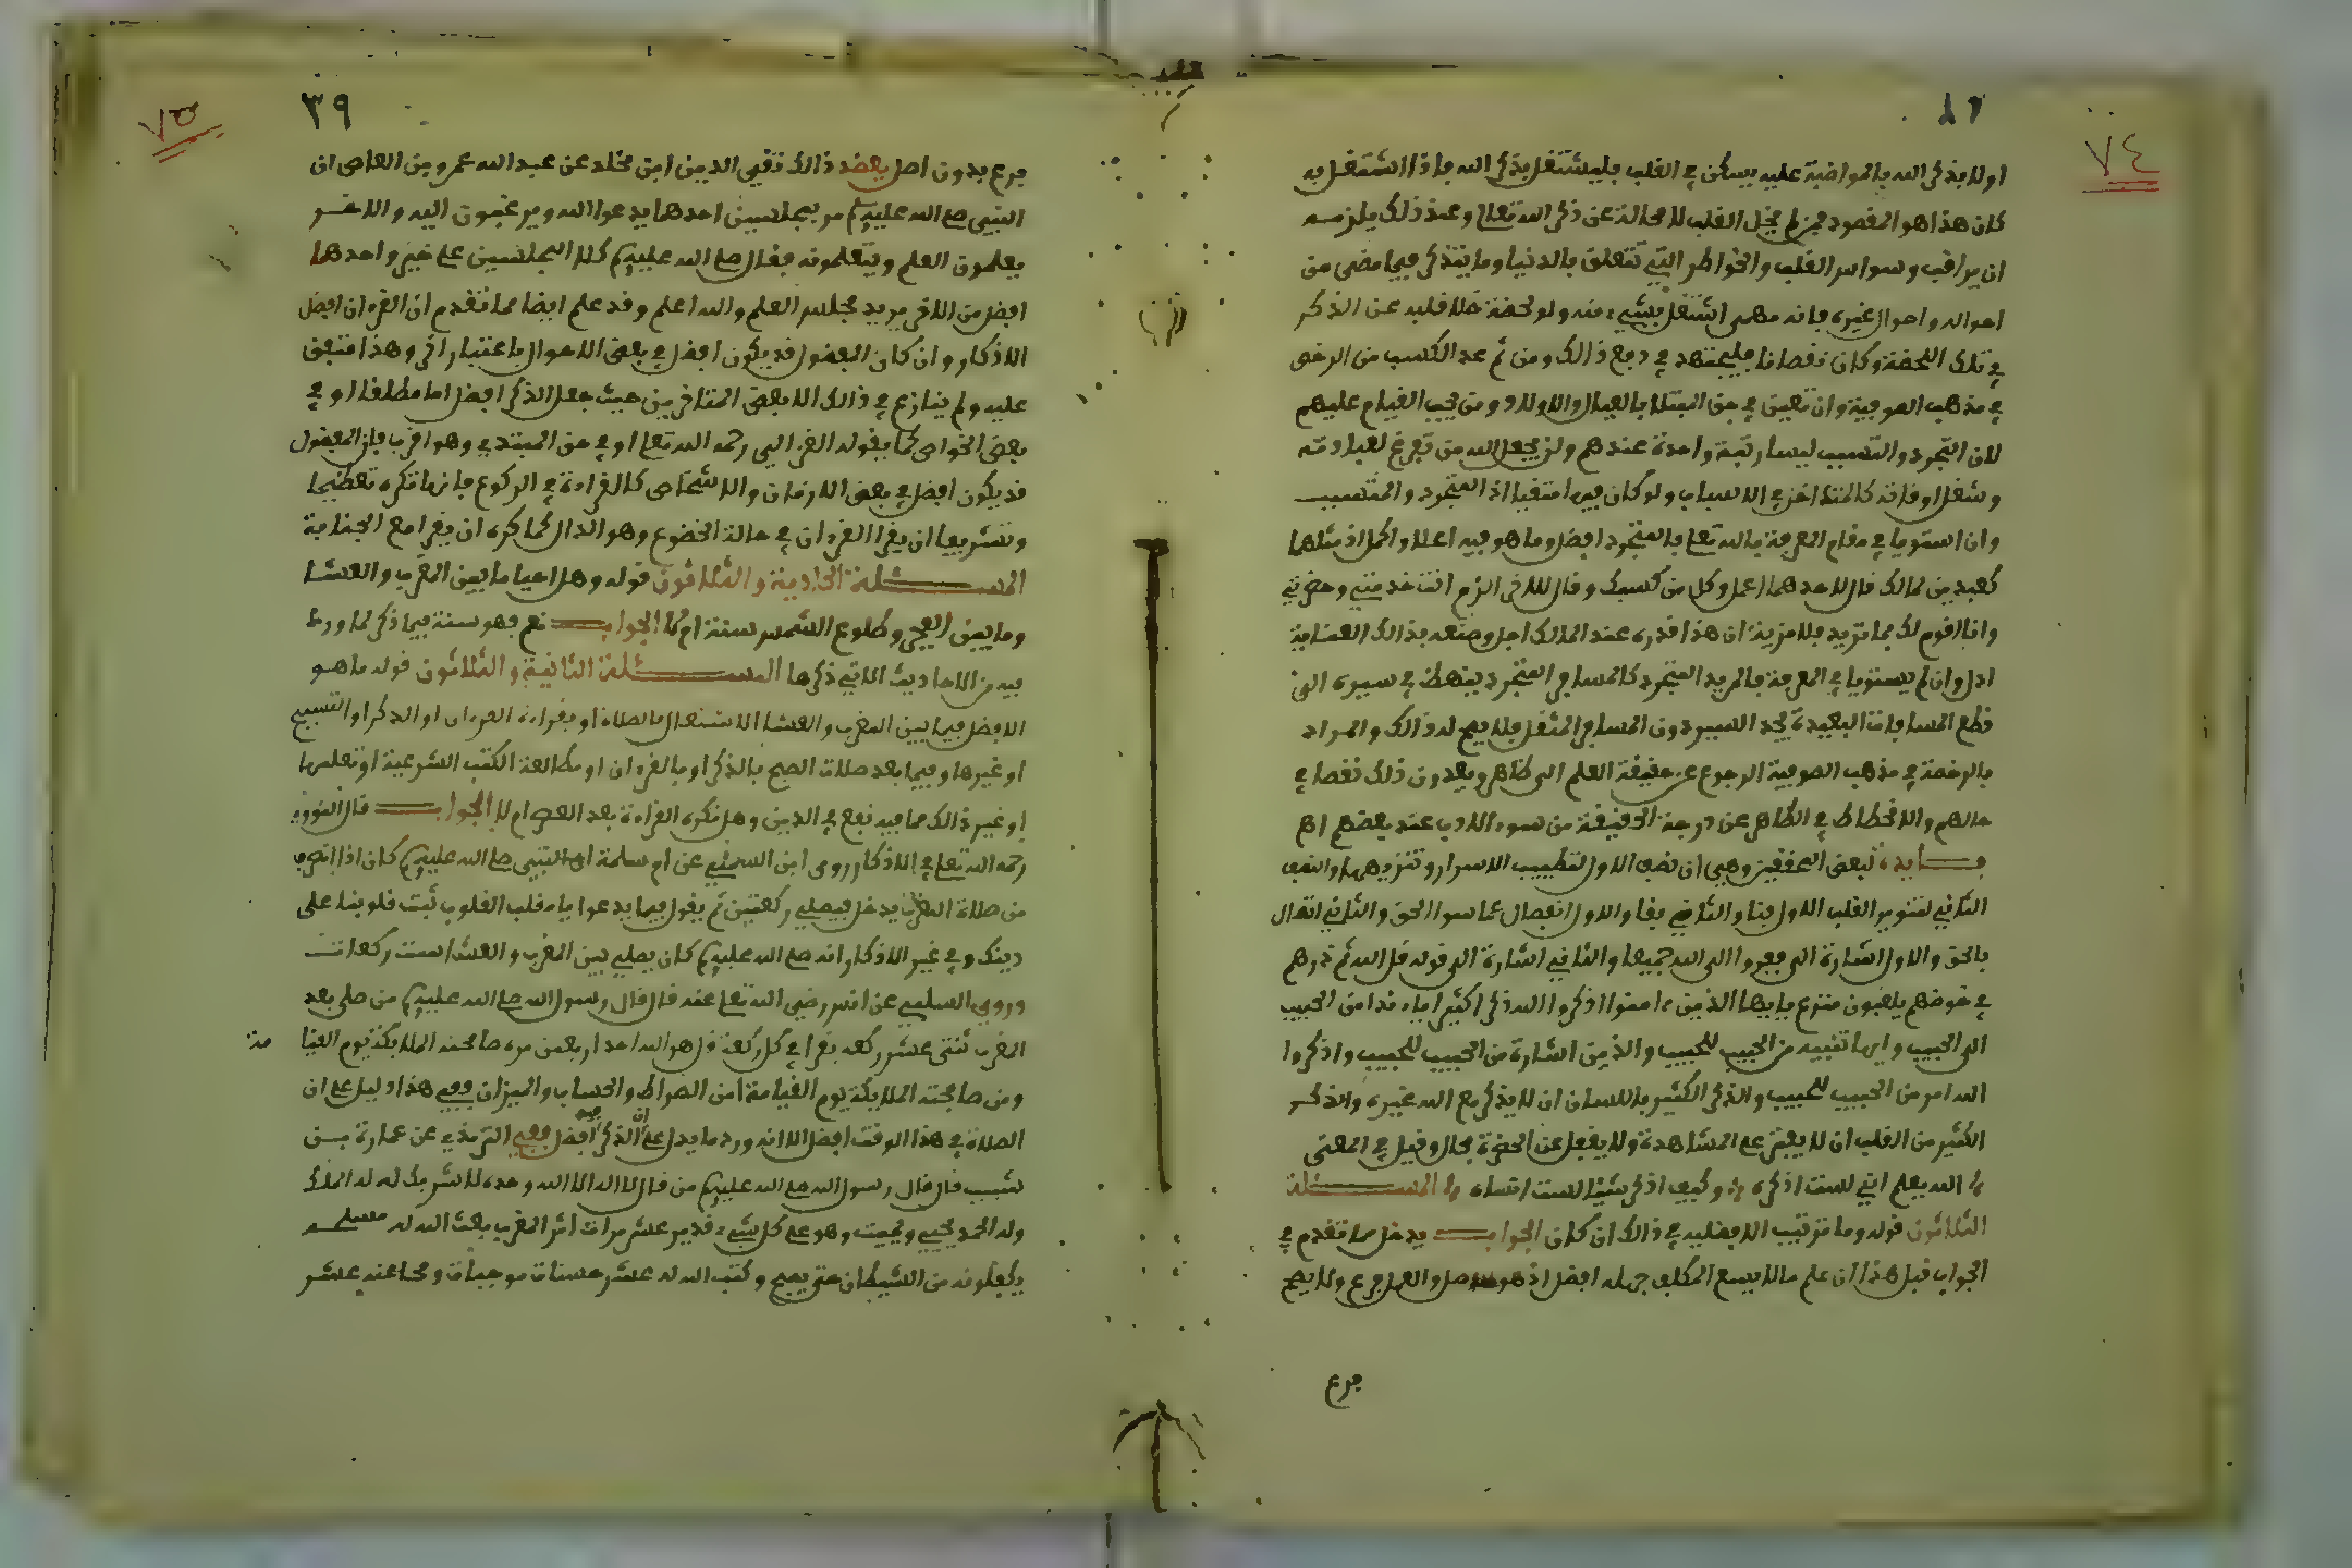 ٧٤
اولا بذكر الله بالمواضبة عليه يسكن في القلب فليشتغل بذكر الله فاذا اشتغل به
كان هذا هو المقصود فمن لم يخل القلب لا محالة عن ذكر الله تعالى وعند ذلك يلزمه
ان يراقب وسواس القلب والخواطر التي تتعلق بالدنيا وما يتذكر فيما مضى من
احواله واحوال غيره فانه مهما اشتغل بشيء منه ولو لحظة خلا قلبه عن الذكر
في تلك اللحظة وكان نقصانا فليجتهد في دفع ذالك ومن ثم عد الكسب من الرخص
في مذهب الصوفية وان تعين في حق المبتلا بالعيال والاولاد ومن يجب القيام عليهم
لان التجرد والتسبب ليسا رتبة واحدة عندهم ولن يجعل الله من تفرغ لعبادته
وشغل اوقاته كالمتداخل في الاسباب ولو كان فيها متقيا اذ المتجرد والمتسبب
وان استويا في مقام المعرفة بالله تعلى فالمتجرد افضل وما هو فيه اعلا واكمل اذ مثلهما
كعبدين لمالك قال لاحدهما اعمل وكل من كسبك وقال للاخر الزم انت خدمتي وحضرتي
وانا اقوم لك بما تريد فلا مزية ان هذا قدره عند المالك اجل وصنعه بذالك العناية
ادل وان لم يستويا في المعرفة فالمريد المتجرد كالمسافر المتجرد ينهض في سيره الى
قطع المسافات البعيدة يجد السير دون المسافر المثقل فلا يصح له ذالك والمراد
بالرخصة في مذهب الصوفية الرجوع عن حقيقة العلم الى ظاهره ويعدون ذلك نقصا في
حالهم والانحطاط في الظاهر عن درجة الحقيقة من سوء الادب عند بعضهم اهم
فايدة لبعض المحققين وهي ان نصف الاول لتطييب الاسرار وتنزيهها والنصف
الثاني لتنوير القلب الاول فنا والثاني بقا والاول انفصال عما سوا الحق والثاني اتصال
بالحق والاول اشارة الى ففروا الى الله جميعا والثاني اشارة الى قوله قل الله ثم ذرهم
في خوضهم يلعبون منزع يايها الذين ءامنوا اذكروا الله ذكرا كثيرا ياء ندا من الحبيب
الى الحبيب وايها تنبيه من الحبيب للحبيب والذين اشارة من الحبيب للحبيب واذكروا
الله امر من الحبيب للحبيب والذكر الكثير باللسان ان لا يذكر مع الله غيره والذكر
الكثير من القلب ان لا يفتر على المشاهدة ولا يغفل عن الحضرة بحال وقيل في المعنى
الله يعلم اني لست اذكره وكيف اذكر شيئا لست انساه المسئلة
الثلاثون قوله وما ترتيب الافضلية في ذالك ان كان الجواب يدخل مما تقدم في
الجواب قبل هذا ان علم ما لا يسع المكلف جهله افضل اذ هو اصل والعمل فرع ولا يصح
فرع
٧٥
٣٩
فرع بدون اصل يعضد ذالك تقيي الدين ابن مخلد عن عبد الله عمرو بن العاصى ان
النبيى صلى الله عليه وسلم مر بمجلسين احدهما يدعوا الله ويرغبون اليه والاخر
يعلمون العلم ويتعلمونه فقال صلى الله عليه وسلم كلا المجلسين على خير واحدهما
افضل من الاخر يريد مجلس العلم والله اعلم وقد علم ايضا مما تقدم ان القرءان افضل
الاذكار وان كان المفضول قد يكون افضل في بعض الاحوال باعتبار اخر وهذا متفق
عليه ولم ينازع في ذالك الا بعض المتاخرين حيث جعل الذكر افضل اما مطلقا او في
بعض الخواص كما يقوله الغزالي رحمه الله تعلى او في حق المبتدي وهو اقرب فان المفضول
قد يكون افضل في بعض الازمان والاشخاص كالقراءة في الركوع فانها تكره تعظيما
وتشريفا ان يقرا القرءان في حالة الخضوع وهو الدال كما كره ان يقرا مع الجنابة
المسئلة الحادية والثلاثون قوله وهل احيا ما بين المغرب والعشا
وما بين الفجر وطلوع الشمس سنة ام لا الجواب نعم فهو سنة فيما ذكر لما ورد
فيه من الاحاديث الاتي ذكرها المسئلة الثانية والثلاثون قوله ما هو
الافضل فيما بين المغرب والعشا الاشتغال بالصلاة او بقراءة القرءان او الذكر او التسبيح
او غيرها وفيما بعد صلات الصبح بالذكر او بالقرءان او مطالعة الكتب الشرعية او تعلمها
او غير ذالك مما فيه نفع في الدين وهل تكره القراءة بعد العصر ام لا الجواب قال النووي
رحمه الله تعلى في الاذكار روى ابن السني عن ام سلمة ان النبيى صلى الله عليه وسلم كان اذا انصرف
من صلاة المغرب يدخل فيصلي ركعتين ثم يقول فيما يدعوا يا مقلب القلوب ثبت قلوبنا على
دينك وفي غير الاذكار انه صلى الله عليه وسلم كان يصلي بين المغرب والعشا ست ركعات
وروى السلمي عن انس رضي الله تعلى عنه قال قال رسول الله صلى الله عليه وسلم من صلى بعد
المغرب ثنتى عشر ركعة يقرا في كل ركعة قل هو الله احد اربعين مرة صافحته الملايكة يوم القيا
مة
ومن صافحته الملايكة يوم القيامة امن الصراط والحساب والميزان وفي هذا دليل على ان
الصلاة في هذا الوقت افضل الا انه ورد ما يدل على ان الذكر فيه افضل ففي الترمذي عن عمارة بن
شبيب قال قال رسول الله صلى الله عليه وسلم من قال لا اله الا الله وحده لا شريك له له الملك
وله الحمد يحيي ويميت وهو على كل شيء قدير عشر مرات اثر المغرب بعث الله له مسلحة
يكلونه من الشيطان حتى يصبح وكتب الله له عشر حسنات موجبات ومحا عنه عشر